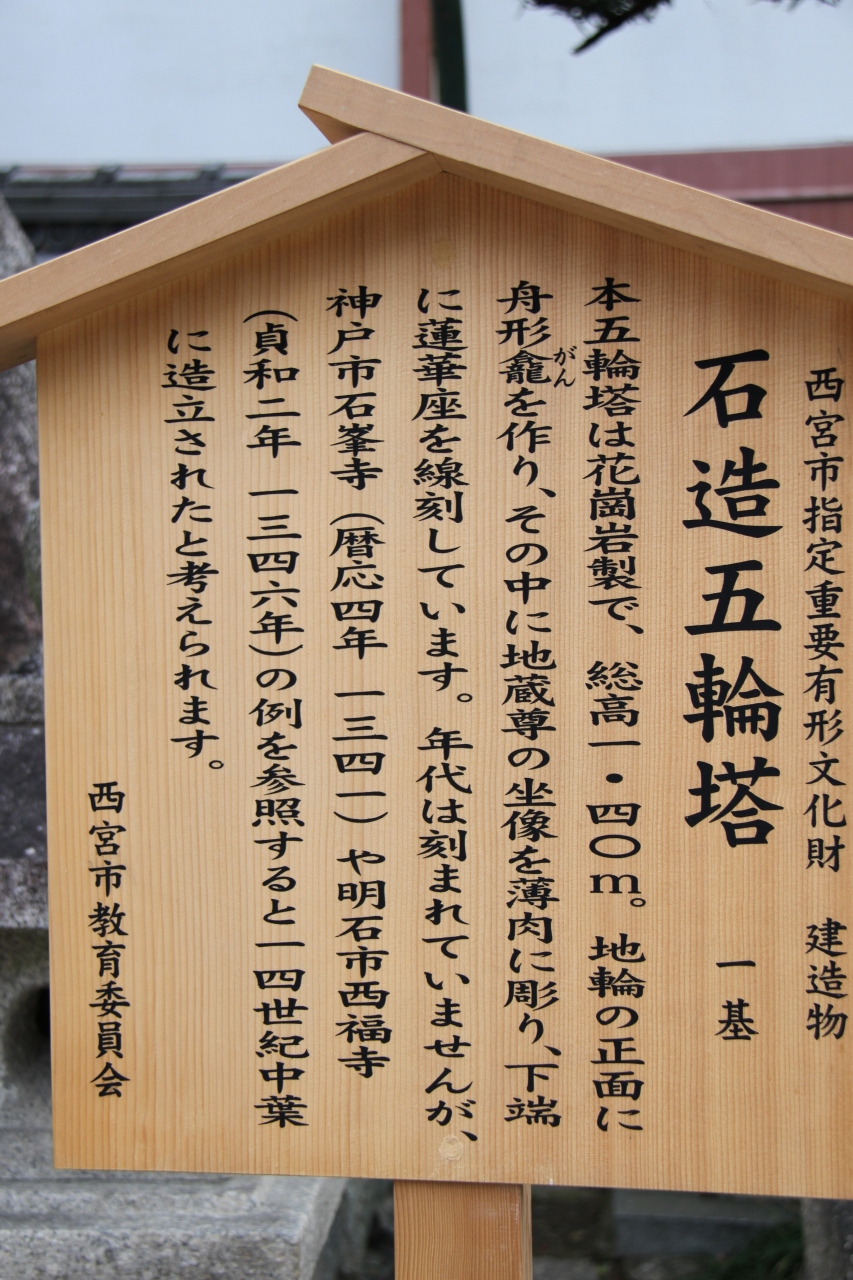 西宮市指定重要有形文化財　建造物
石造五輪塔　一基
本五輪塔は花崗岩製で、総高一・四〇ｍ。地輪の正面に
舟形龕を作り、その中に地蔵尊の坐像を薄肉に彫り、下端
がん
に蓮華座を線刻しています。年代は刻まれていませんが、
神戸市石峯寺（暦応四年　一三四一）や明石市西福寺
（貞和二年　一三四六年）の例を参照すると一四世紀中葉
に造立されたと考えられます。
西宮市教育委員会